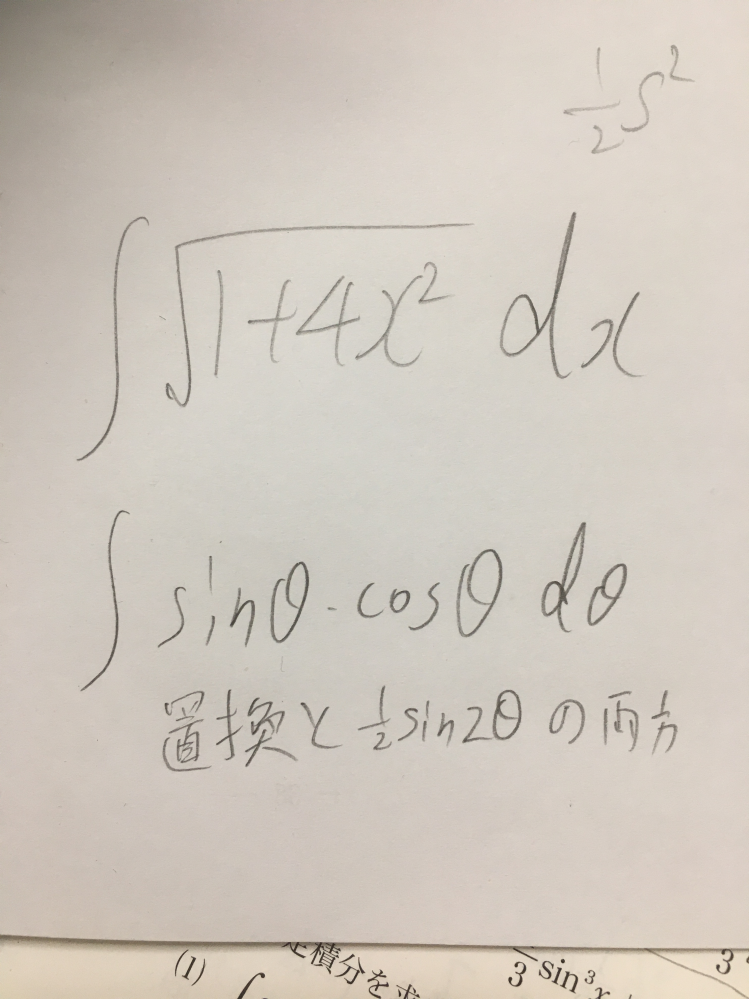 1/2 s²
∫ √(1+4x²) dx
∫ sinθ·cosθ dθ
置換と 1/2 sin2θ の両方
定積分を求
(1) ∫
3 sin³x
3